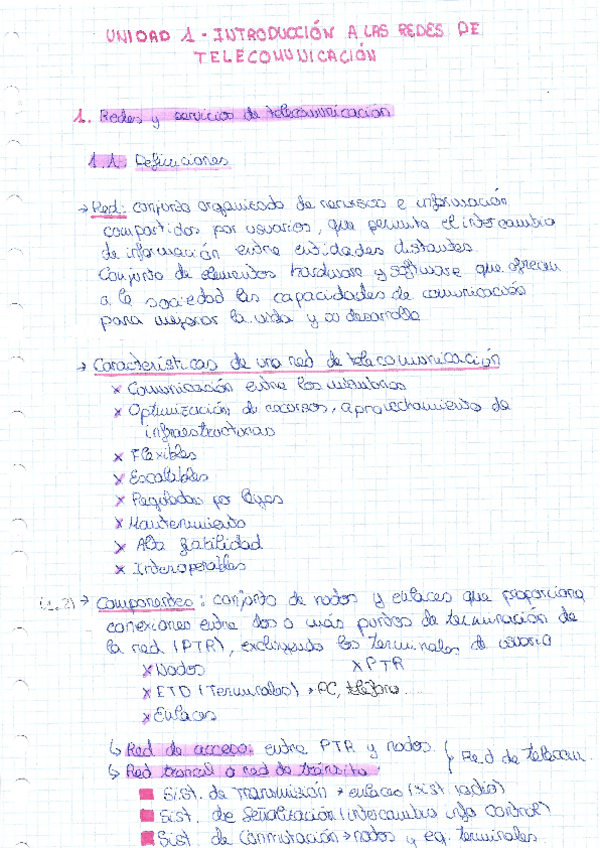 UNIDAD 1 - INTRODUCCIÓN A LAS REDES DE
TELECOMUNICACIÓN
1. Redes y servicios de telecomunicación
1.1 Definiciones
→ Red: conjunto organizado de recursos e información
compartidos por usuarios, que permita el intercambio
de información entre entidades distantes.
Conjunto de elementos hardware y software que ofrecen
a la sociedad las capacidades de comunicación
para mejorar la vida y su desarrollo
→ Características de una red de telecomunicación
x Comunicación entre los miembros
x Optimización de recursos, aprovechamiento de
infraestructuras
x Flexibles
x Escalables
x Reguladas por leyes
x Mantenimiento
x Alta fiabilidad
x Interoperables
(1.2) → Componentes: conjunto de nodos y enlaces que proporciona
conexiones entre dos o más puntos de terminación de
la red (PTR), excluyendo los terminales de usuario
x Nodos x PTR
x ETD (Terminales) → PC, teléfono...
x Enlaces
↳ Red de acceso: entre PTR y nodos } Red de telecom.
↳ Red troncal o red de tránsito
■ Sist. de Transmisión → enlaces (sist. radio)
■ Sist. de Señalización (intercambio info control)
■ Sist. de Conmutación → nodos y eq. terminales